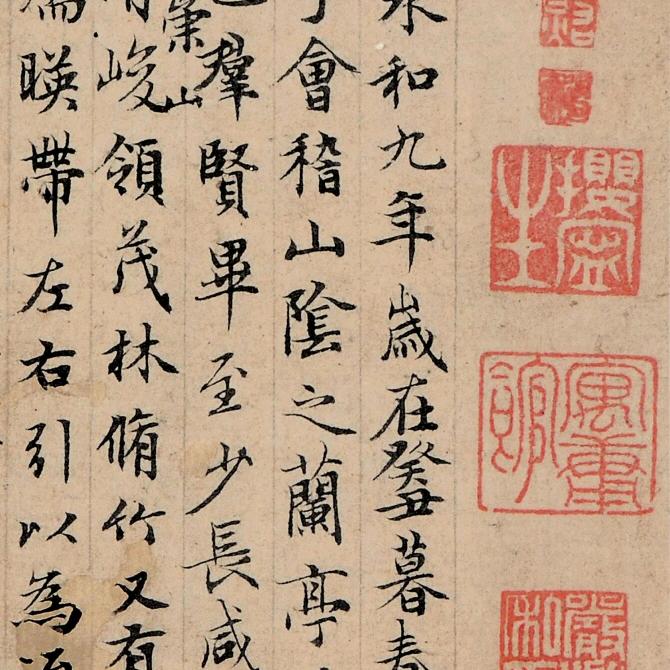 永和九年歲在癸丑暮春
于會稽山陰之蘭亭
也羣賢畢至少長咸
有崇山峻領茂林脩竹又有
湍暎帶左右引以為流